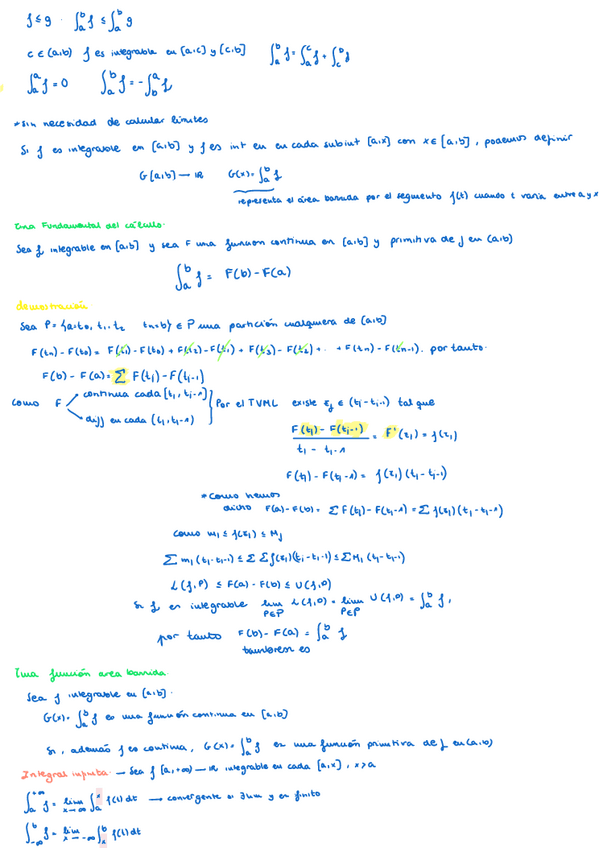 f ≤ g · ∫ₐᵇ f ≤ ∫ₐᵇ g
c ∈ (a,b) f es integrable en [a,c] y [c,b] ∫ₐᵇ f = ∫ₐᶜ f + ∫꜀ᵇ f
∫ₐᵃ f = 0 ∫ₐᵇ f = -∫ᵇₐ f
*sin necesidad de calcular límites
Si f es integrable en [a,b] y f es int en en cada subint [a,x] con x ∈ [a,b], podemos definir
G [a,b] → ℝ G(x) = ∫ₐᵇ f
representa el área barrida por el segmento f(t) cuando t varía entre a y x
Tma Fundamental del cálculo.
Sea f integrable en [a,b] y sea F una función continua en [a,b] y primitiva de f en (a,b)
∫ₐᵇ f = F(b) - F(a)
demostración
Sea P = {a=t₀, t₁.. t₂ tₙ=b} ∈ P una partición cualquiera de [a,b]
F(tₙ) - F(t₀) = F(t₁) - F(t₀) + F(t₂) - F(t₁) + F(t₃) - F(t₂) + .. + F(tₙ) - F(tₙ-₁). por tanto.
F(b) - F(a) = ∑ F(tⱼ) - F(tⱼ-₁)
como F continua cada [tⱼ, tⱼ-₁] por el TVML existe zⱼ ∈ (tⱼ - tⱼ-₁) tal que
diff en cada (tⱼ, tⱼ-₁)
F(tⱼ) - F(tⱼ-₁) / tⱼ - tⱼ-₁ = F'(zⱼ) = f(zⱼ)
F(tⱼ) - F(tⱼ-₁) = f(zⱼ)(tⱼ - tⱼ-₁)
*como hemos
dicho F(a) - F(b) = ∑ F(tⱼ) - F(tⱼ-₁) = ∑ f(zⱼ)(tⱼ - tⱼ-₁)
como mⱼ ≤ f(zⱼ) ≤ Mⱼ
∑ mⱼ(tⱼ - tⱼ-₁) ≤ ∑ ∑ f(zⱼ)(tⱼ - tⱼ-₁) ≤ ∑ Mⱼ (tⱼ - tⱼ-₁)
L(f,P) ≤ F(a) - F(b) ≤ U(f,P)
Si f es integrable lim P∈P L(f,P) = lim P∈P U(f,P) = ∫ₐᵇ f,
por tanto F(b) - F(a) = ∫ₐᵇ f
también es
Tma función area barrida
Sea f integrable en [a,b].
G(x) = ∫ₐᵇ f es una función continua en [a,b]
Si, además f es continua, G(x) = ∫ₐᵇ f es una función primitiva de f en (a,b)
Integral impropia → Sea f [a,+∞) → ℝ integrable en cada [a,x], x>a
∫ₐ⁺∞ f = lim x→∞ ∫ₐˣ f(t) dt → convergente si ∃ lim y es finito
∫₋∞ᵇ f = lim x→-∞ ∫ₓᵇ f(t) dt